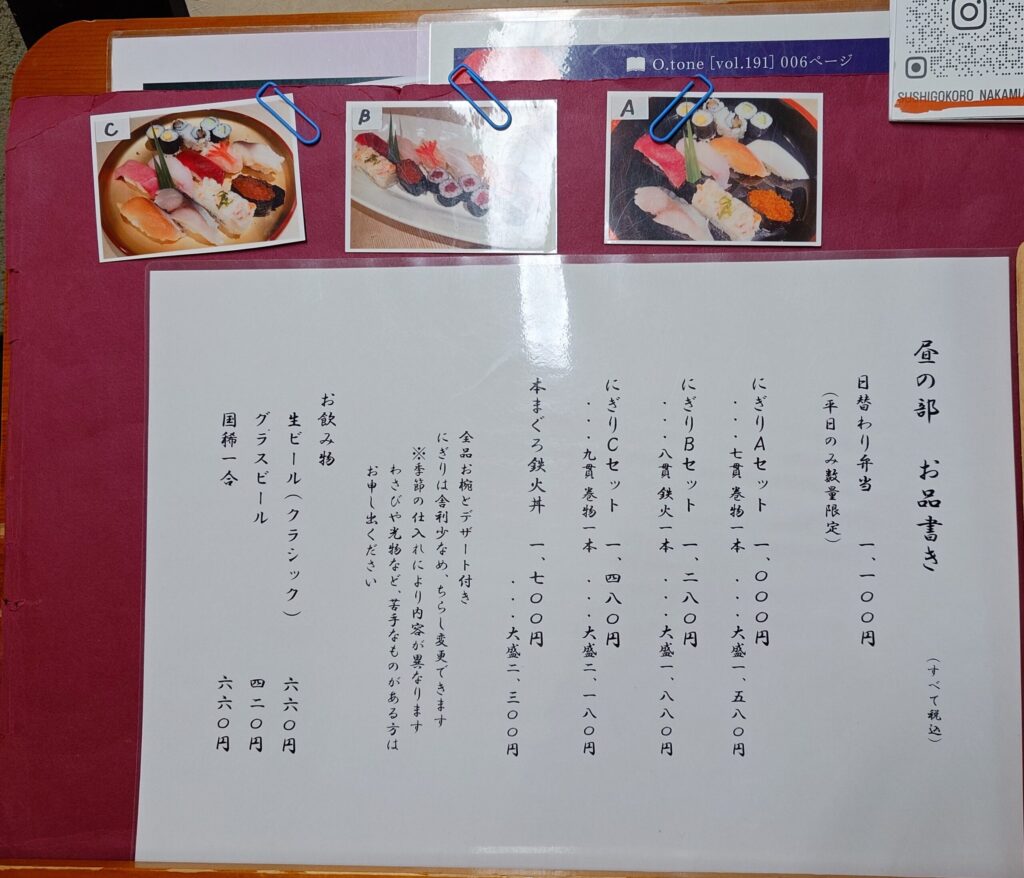 O.tone [vol.191] 006ページ
SUSHIGOKORO NAKAMU
C
B
A
昼の部 お品書き (すべて税込)
日替わり弁当 一、一〇〇円
(平日のみ数量限定)
にぎりAセット 一、〇〇〇円
・・・七貫 巻物一本 ・・・大盛一、五八〇円
にぎりBセット 一、二八〇円
・・・八貫 鉄火一本 ・・・大盛一、八八〇円
にぎりCセット 一、四八〇円
・・・九貫 巻物一本 ・・・大盛二、一八〇円
本まぐろ鉄火丼 一、七〇〇円
・・・大盛二、三〇〇円
全品お椀とデザート付き
にぎりは舎利少なめ、ちらし変更できます
※季節の仕入れにより内容が異なります
わさびや光物など、苦手なものがある方は
お申し出ください
お飲み物
生ビール(クラシック) 六六〇円
グラスビール 四二〇円
国稀一合 六六〇円